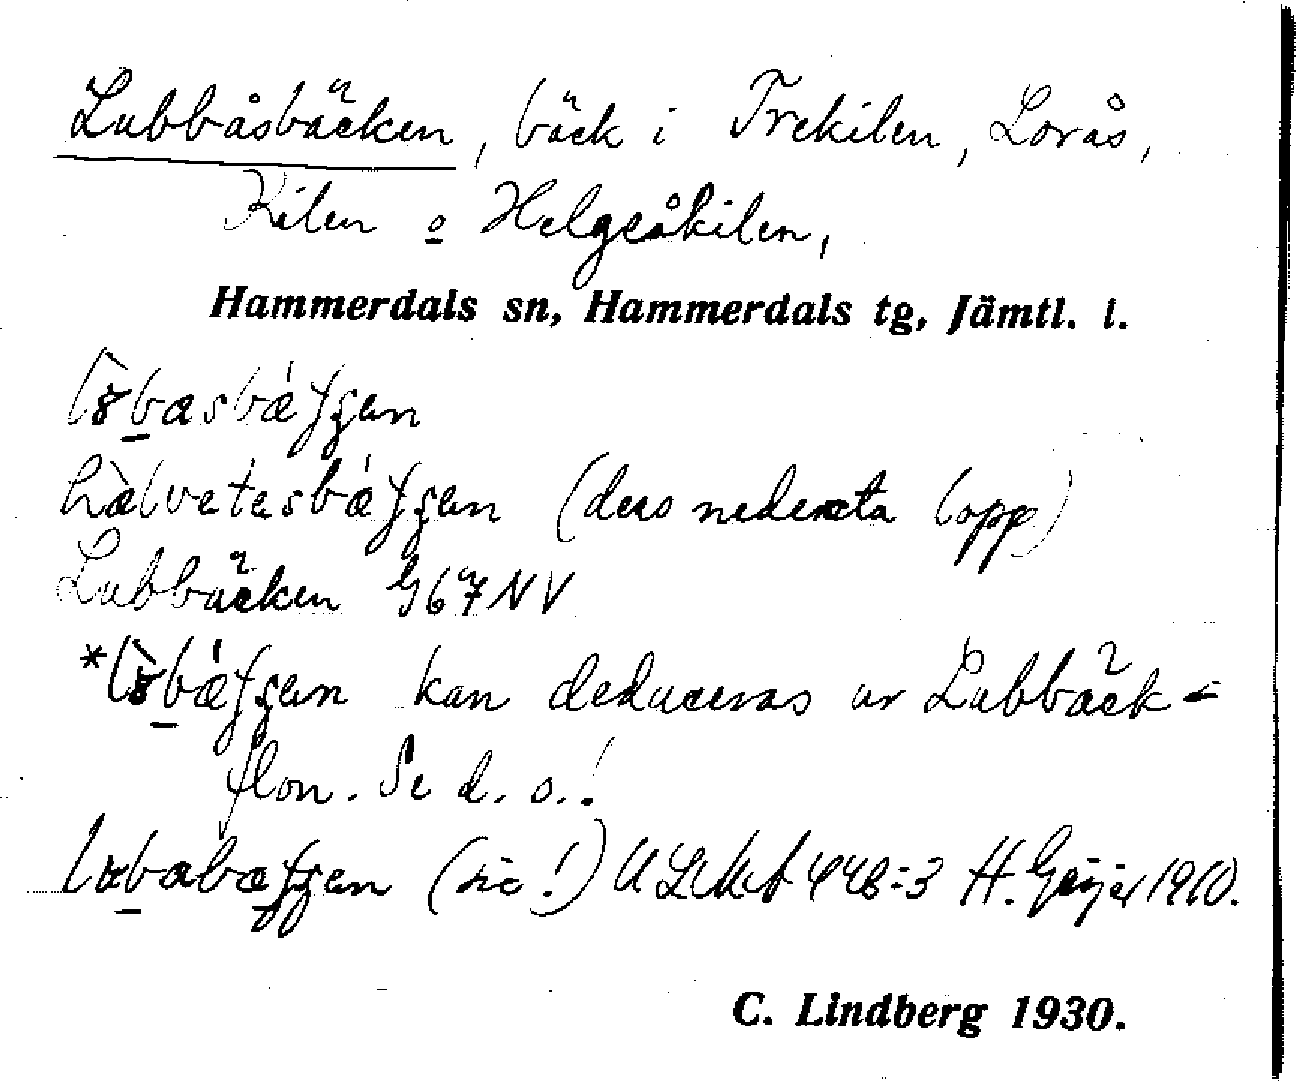 Lubbåsbäcken, bäck i Trekilen, Lorås,
Kilen o Helgeåkilen,
Hammerdals sn, Hammerdals tg, Jämtl. l.
(dess nedersta lopp)
Lubbäcken G67NV
kan deduceras ur Lubbäck-
flon. Se d. o.!
(sic!) ULMA 448:3 H. Geijer 1910.
C. Lindberg 1930.